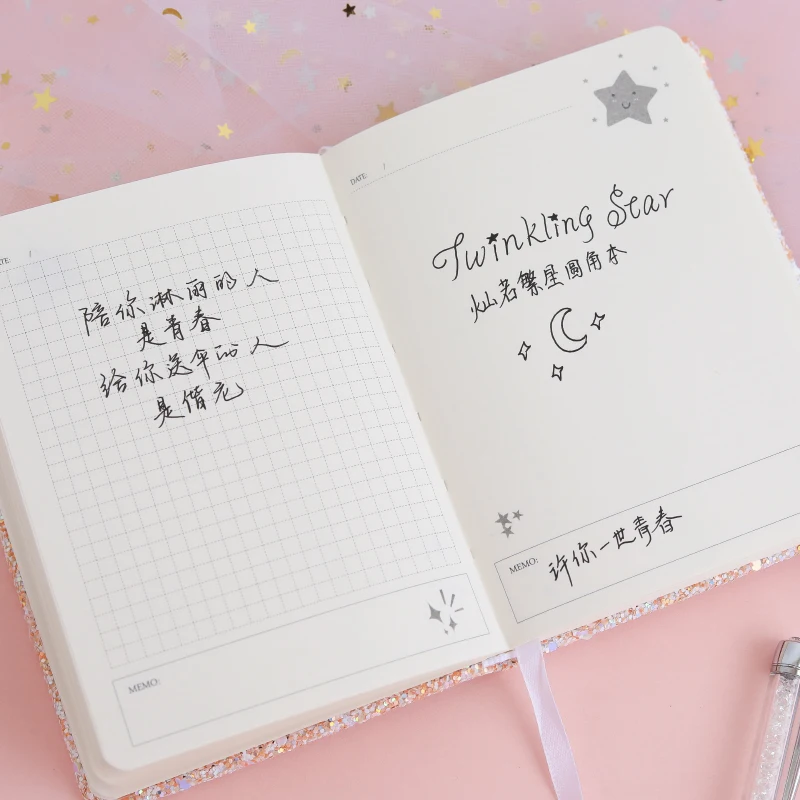 DATE: /
陪你淋雨的人
是青春
给你送伞的人
是偕老
MEMO:
DATE: /
Twinkling Star
灿若繁星圆角本
MEMO: 许你一世青春